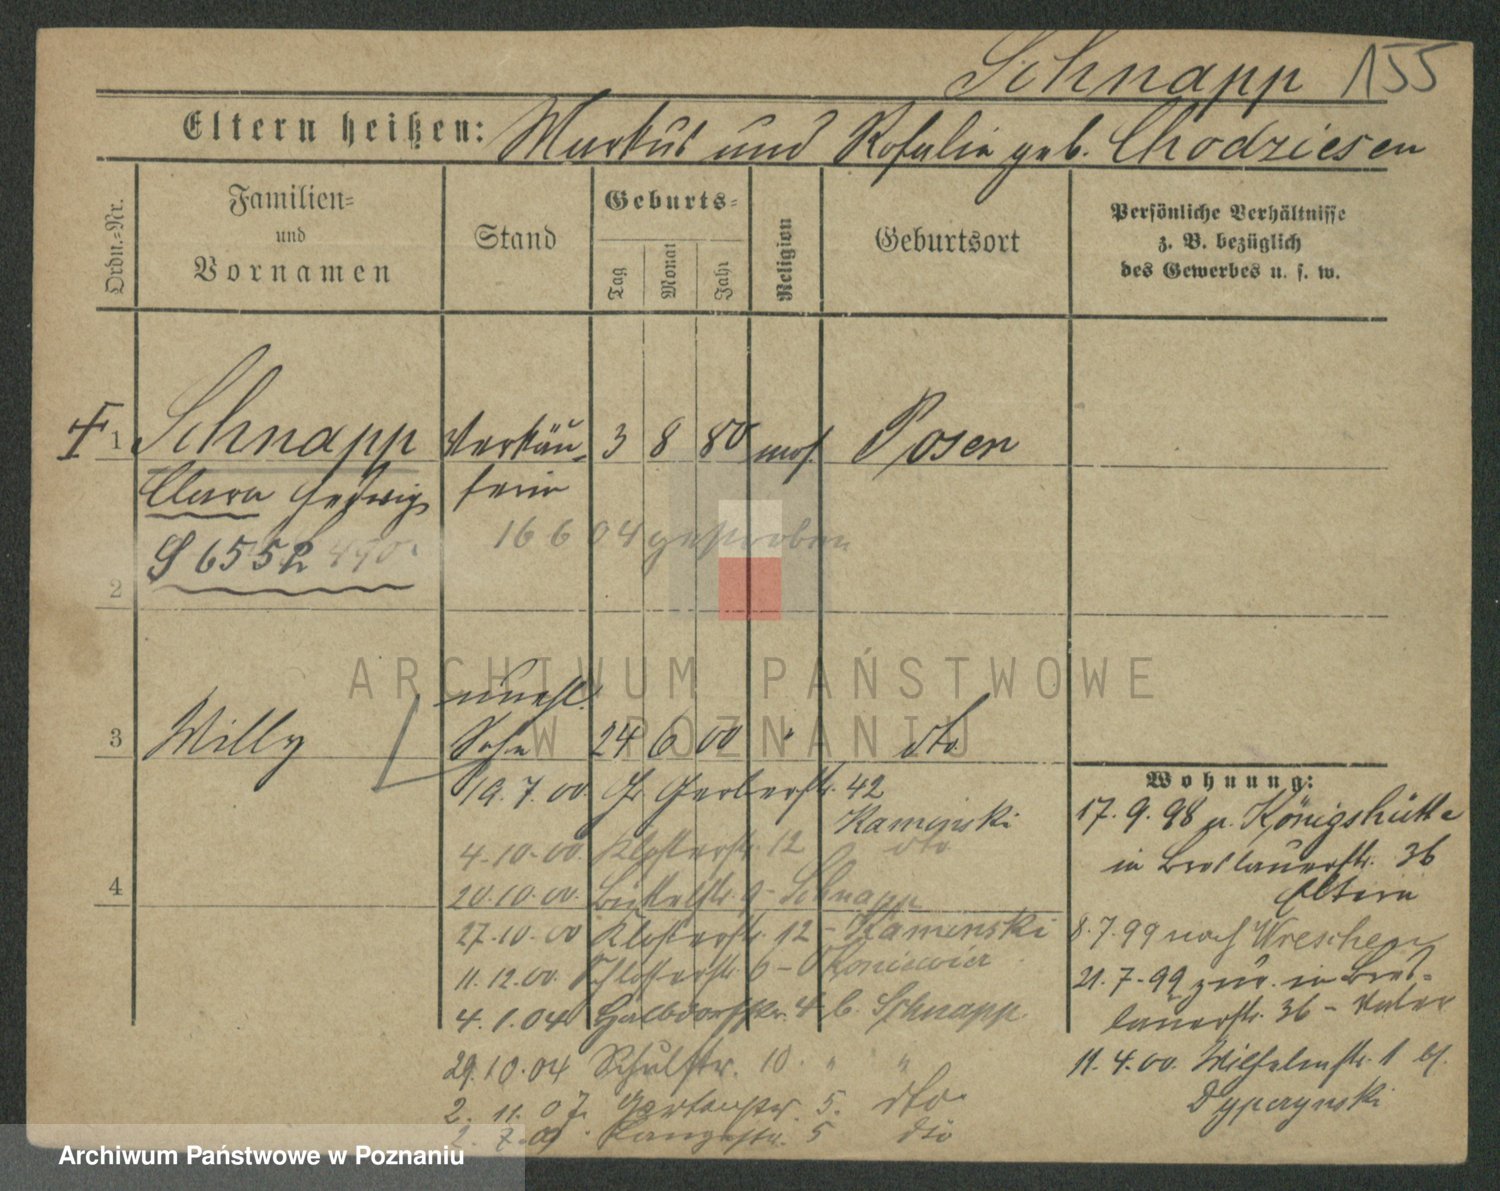 Schnapp 155
Eltern heißen: Markus und Rosalie geb. Chodziesen
Ordn.-Nr.
Familien-
und
Vornamen
Stand
Geburts-
Tag
Monat
Jahr
Religion
Geburtsort
Persönliche Verhältnisse
z. B. bezüglich
des Gewerbes u. s. w.
1 Schnapp Verkäu- 3 8 80 mos. Posen
Clara Hedwig ferin
16 6 04 gestorben
S 6552
2
unehl.
3 Willy Sohn 24 6 00 " dto
19.7.00. Gr Gerberstr. 42
Kaminski
4.10.00. Klosterstr. 12 dto
4
20.10.00. Büttelstr. 9 - Schnapp
27.10.00 Klosterstr. 12 - Kaminski
11.12.00. Schlosserstr. 6 -
4.1.04 Halbdorfstr. 4 b. Schnapp.
29.10.04 Schulstr. 10. " "
2. 11. 07. Gartenstr. 5. dto
Langestr. 5 dto
Wohnung:
17.9.98 n. Königshütte
in Breslauerstr. 36
Eltern
8.7.99 nach Wreschen
21.7.99 zur. in Bres-
lauerstr. 36 - Vater
11.4.00. Wilhelmstr. 1 bei
ARCHIWUM PAŃSTWOWE
W POZNANIU
Archiwum Państwowe w Poznaniu